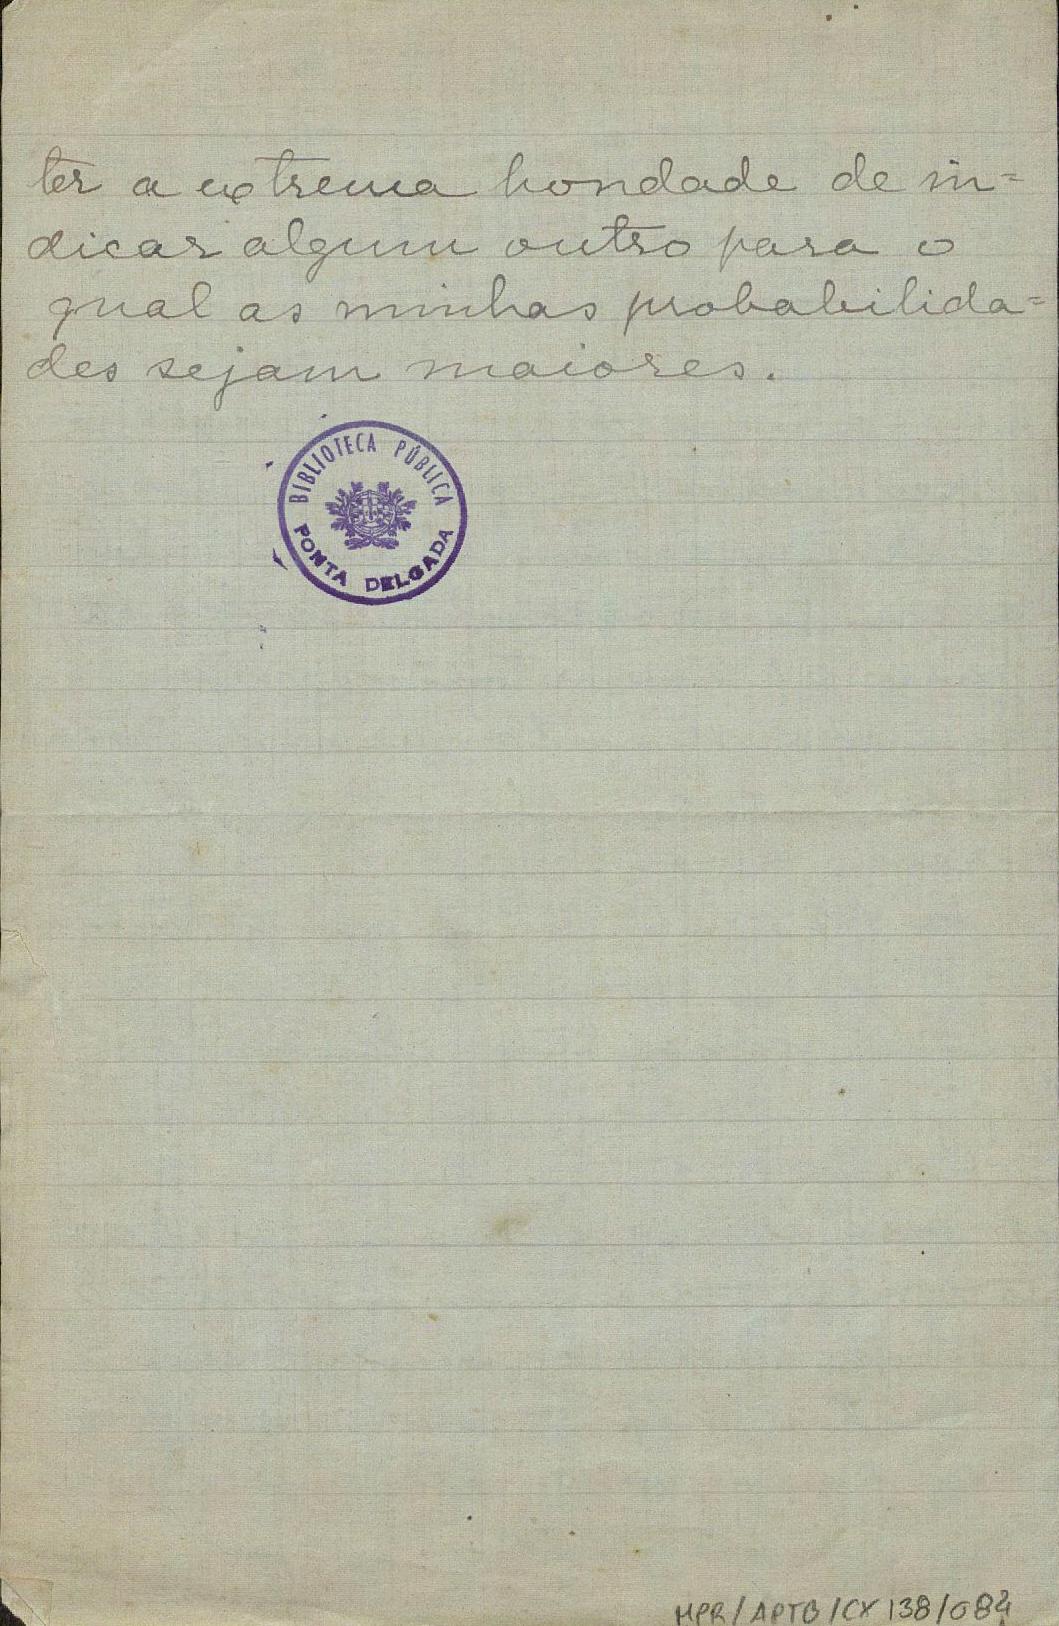 ter a extrema bondade de in=
dicar algum outro para o
qual as minhas probabilida=
des sejam maiores.
BIBLIOTECA PÚBLICA
PONTA DELGADA
MPR/APTB/CX138/082